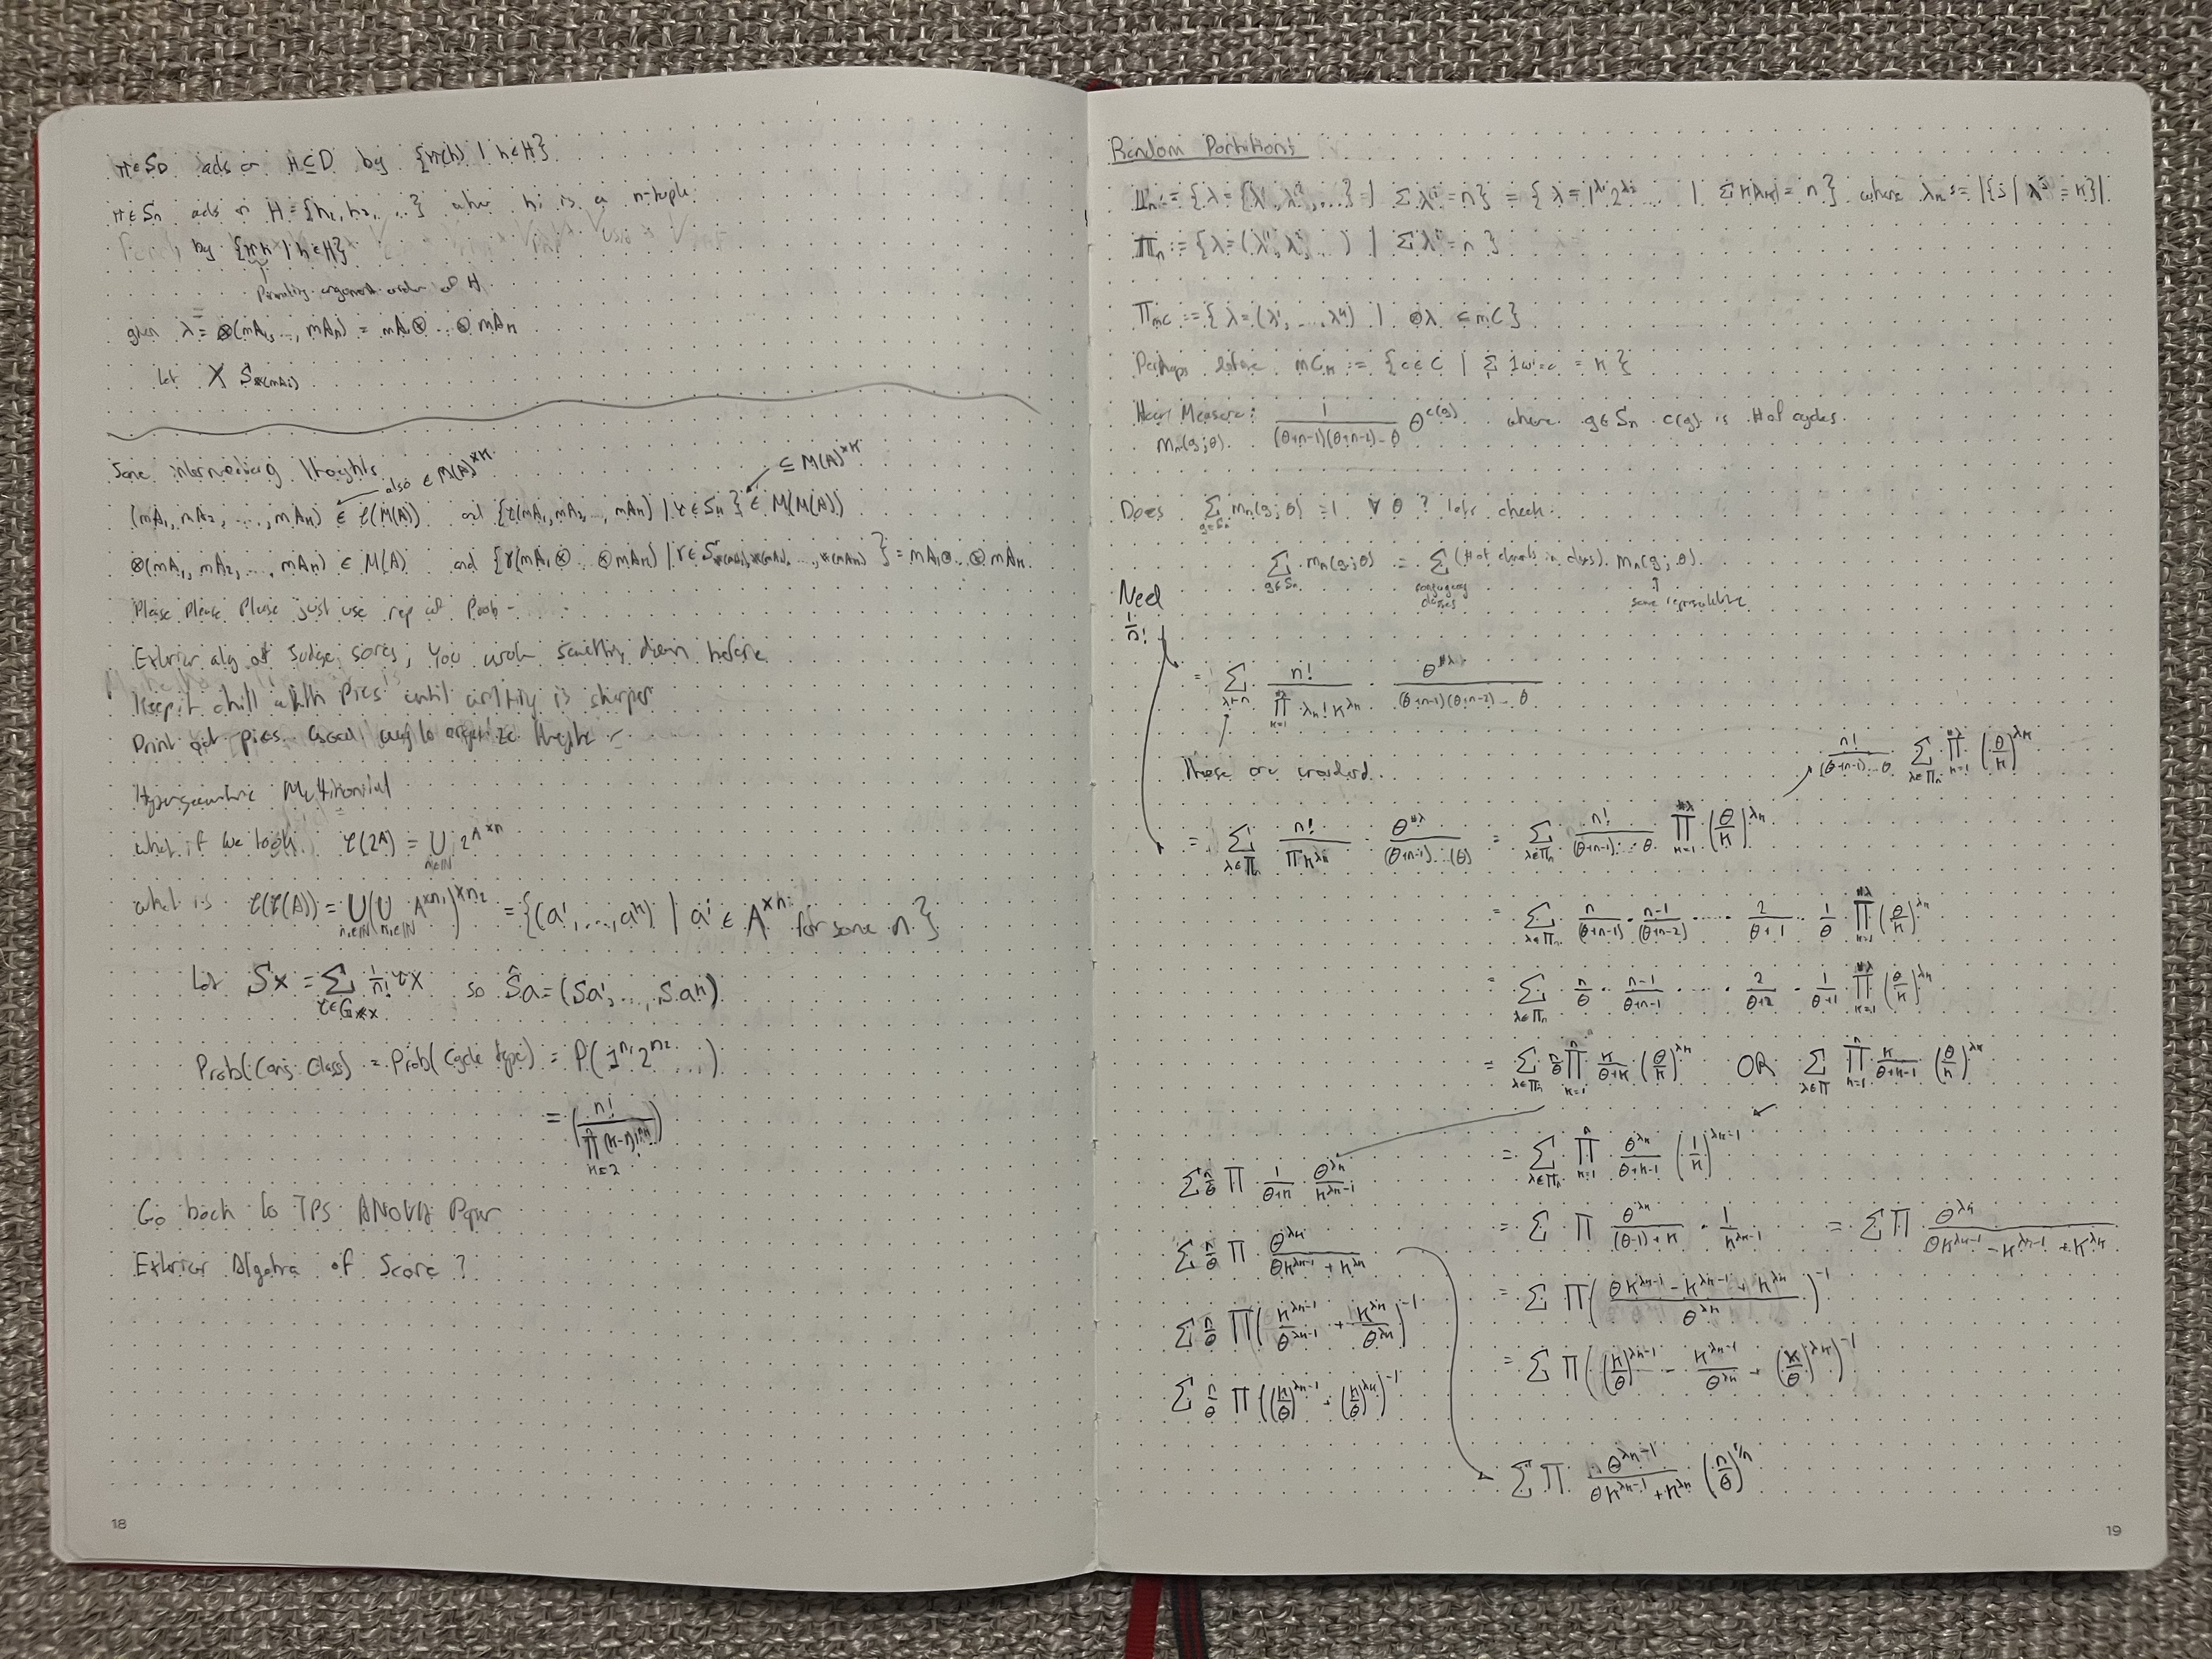 ∀π∈S_D π acts on H⊆D by {π(h) | h∈H}
π∈S_n acts on H={h_1, h_2, ...} where h_i is a n-tuple
by {πh | h∈H}
given λ = ⊗(mA_1, ..., mA_n) = mA_1⊗...⊗mA_n
let X
Some interrediag thoughts
also ∈ M(A)^{×n}
⊆ M(A)^{×n}
(mA_1, mA_2, ..., mA_n) ∈ τ(M(A)) and {τ(mA_1, mA_2, ..., mA_n) | τ∈S_n} ∈ M(M(A))
⊗(mA_1, mA_2, ..., mA_n) ∈ M(A) and {τ(mA_1⊗...⊗mA_n) | τ∈S } = mA_1⊗...⊗mA_n
Please please please just use rep of Prob-
Exterior alg of sudge sores, you wrote something down before
keep it chill with pics until writing is sharper
Print out pics
Hypergeometric Multinomial
what if we look τ(2A) = ∪_{n∈ℕ} 2^{A^{×n}}
what is τ(τ(A)) = ∪_{n_2∈ℕ}(∪_{n_1∈ℕ} A^{×n_1})^{×n_2} = {(a^1, ..., a^n) | a^i ∈ A^{×n_i} for some n}
let Sx = Σ_{τ∈G_{*x}} 1/n! τx so Ŝa = (Sa^1, ..., Sa^n)
Prob(conj class) = Prob(cycle type) = P(1^{n_1} 2^{n_2} ...)
Go back to TPS ANOVA Paper
Exterior Algebra of Score?
18
Random Partitions
Π_n := {λ={λ^1, λ^2, ...} | Σλ^i = n} = {λ=1^{λ_1} 2^{λ_2} ... | Σkλ_k = n} where λ_k := |{j | λ^j = k}|
Π_n := {λ=(λ^1, λ^2, ...) | Σλ^i = n}
Π_{mC} := {λ=(λ^1, ..., λ^k) | ⊗λ ⊆ mC}
Perhaps define mC_k := {c∈C | Σ1_{ω=c} = k}
Haar Measure: 1/((θ+n-1)(θ+n-2)...θ) θ^{c(g)} where g∈S_n c(g) is # of cycles
m_n(g;θ)
Does Σ_{g∈S_n} m_n(g;θ) = 1 ∀θ? lets check:
Σ_{g∈S_n} m_n(g;θ) = Σ_{conjugacy classes} (# of elements in class) m_n(g;θ)
some representative
Need 1/n!
= Σ_{λ⊢n} n!/(∏_{k=1}^{#λ} λ_k! k^{λ_k}) θ^{#λ}/((θ+n-1)(θ+n-2)...θ)
These are unordered.
n!/((θ+n-1)...θ) Σ_{λ∈Π_n} ∏_{k=1}^{#λ} (θ/k)^{λ_k}
= Σ_{λ∈Π_n} n!/(∏k^{λ_k}) θ^{#λ}/((θ+n-1)...(θ)) = Σ_{λ∈Π_n} n!/((θ+n-1)...θ) ∏_{k=1}^{#λ} (θ/k)^{λ_k}
= Σ_{λ∈Π_n} n/(θ+n-1) · n-1/(θ+n-2) · ... · 2/(θ+1) · 1/θ ∏_{k=1}^{#λ} (θ/k)^{λ_k}
= Σ_{λ∈Π_n} n/θ · n-1/(θ+n-1) · ... · 2/(θ+2) · 1/(θ+1) ∏_{k=1}^{#λ} (θ/k)^{λ_k}
= Σ_{λ∈Π_n} n/θ ∏_{k=1} k/(θ+k) (θ/k)^{λ_k} OR Σ_{λ∈Π} ∏_{k=1}^n k/(θ+k-1) (θ/k)^{λ_k}
= Σ_{λ∈Π_n} ∏_{k=1}^n θ^{λ_k}/(θ+k-1) (1/k)^{λ_k-1}
Σ n/θ ∏ 1/(θ+k) θ^{λ_k}/k^{λ_k-1}
= Σ ∏ θ^{λ_k}/((θ-1)+k) · 1/k^{λ_k-1} = Σ ∏ θ^{λ_k}/(θk^{λ_k-1} - k^{λ_k-1} + k^{λ_k})
Σ n/θ ∏ θ^{λ_k}/(θk^{λ_k-1} + k^{λ_k})
= Σ ∏ ((θk^{λ_k-1} - k^{λ_k-1} + k^{λ_k})/θ^{λ_k})^{-1}
Σ n/θ ∏ (k^{λ_k-1}/θ^{λ_k-1} + k^{λ_k}/θ^{λ_k})^{-1}
= Σ ∏ ((k/θ)^{λ_k-1} - k^{λ_k-1}/θ^{λ_k} + (k/θ)^{λ_k})^{-1}
Σ n/θ ∏ ((k/θ)^{λ_k-1} + (k/θ)^{λ_k})^{-1}
Σ ∏ θ^{λ_k-1}/(θk^{λ_k-1} + k^{λ_k}) (n/θ)^{1/n}
19